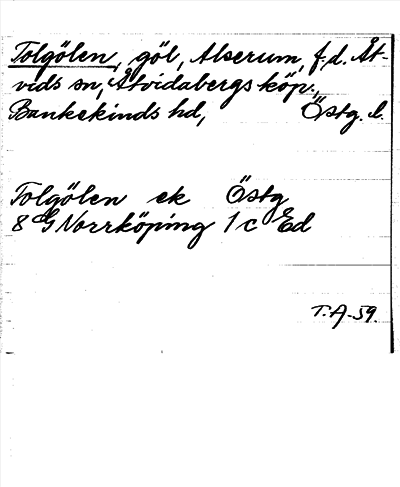 Tolgölen, göl, Alserum, f.d. Åt-
vids sn, Åtvidabergs köp.,
Bankekinds hd, Östg. l.
Tolgölen ek Östg
8 G Norrköping 1 c Ed
T.A-59.